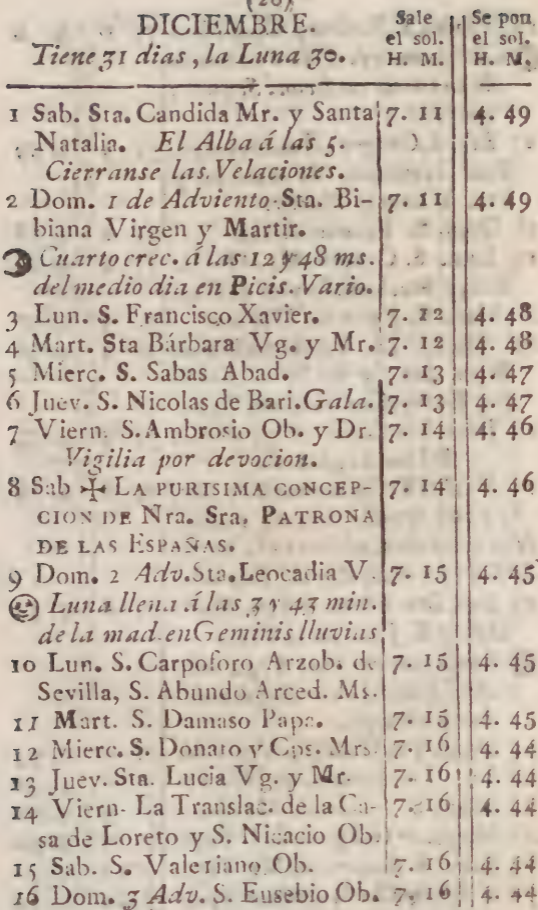 (20)
DICIEMBRE.
Tiene 31 dias, la Luna 30.
Sale el sol. H. M.
Se pon. el sol. H. M.
1 Sab. Sta. Candida Mr. y Santa 7. 11 4. 49
Natalia. El Alba á las 5.
Cierranse las Velaciones.
2 Dom. 1 de Adviento Sta. Bi- 7. 11 4. 49
biana Virgen y Martir.
Cuarto crec. á las 12 y 48 ms.
del medio dia en Picis. Vario.
3 Lun. S. Francisco Xavier. 7. 12 4. 48
4 Mart. Sta Bárbara Vg. y Mr. 7. 12 4. 48
5 Mierc. S. Sabas Abad. 7. 13 4. 47
6 Juev. S. Nicolas de Bari. Gala. 7. 13 4. 47
7 Viern. S. Ambrosio Ob. y Dr. 7. 14 4. 46
Vigilia por devocion.
8 Sab ✠ LA PURISIMA CONCEP- 7. 14 4. 46
CION DE Nra. Sra. PATRONA
DE LAS ESPAÑAS.
9 Dom. 2 Adv. Sta. Leocadia V. 7. 15 4. 45
Luna llena á las 3 y 43 min.
de la mad. en Geminis lluvias
10 Lun. S. Carpoforo Arzob. de 7. 15 4. 45
Sevilla, S. Abundo Arced. Ms.
11 Mart. S. Damaso Papa. 7. 15 4. 45
12 Mierc. S. Donato y Cps. Mrs. 7. 16 4. 44
13 Juev. Sta. Lucia Vg. y Mr. 7. 16 4. 44
14 Viern. La Translac. de la Ca- 7. 16 4. 44
sa de Loreto y S. Nicacio Ob.
15 Sab. S. Valeriano Ob. 7. 16 4. 44
16 Dom. 3 Adv. S. Eusebio Ob. 7. 16 4. 44